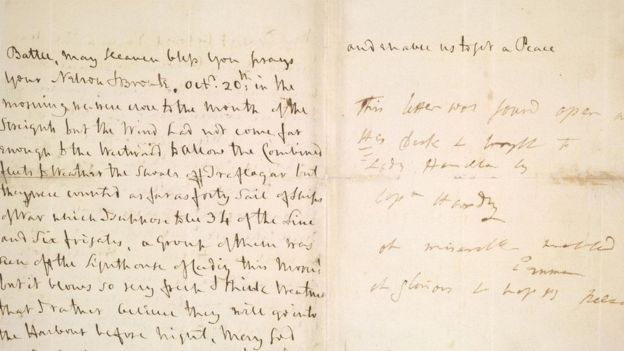 Battle, may Heaven bless you prays
your Nelson & Bronte, Octr. 20th in the
morning we were close to the mouth of the
Streights but the Wind had not come far
enough to the Westward to allow the Combined
fleets to Weather the Shoals off Traflagar but
they were counted as far as forty Sail of Ships
of War which I suppose to be 34 of the Line
and Six frigates, a group of them was
seen off the Lighthouse of Cadiz this Morng
but it blows so very fresh & thick weather
that I rather believe they will go into
the Harbour before night, May God
and enable us to get a Peace
This letter was found open on
His Desk & brought to
Lady Hamilton by
Captn Hardy
oh miserable wretched
Emma
oh glorious & happy Nelson